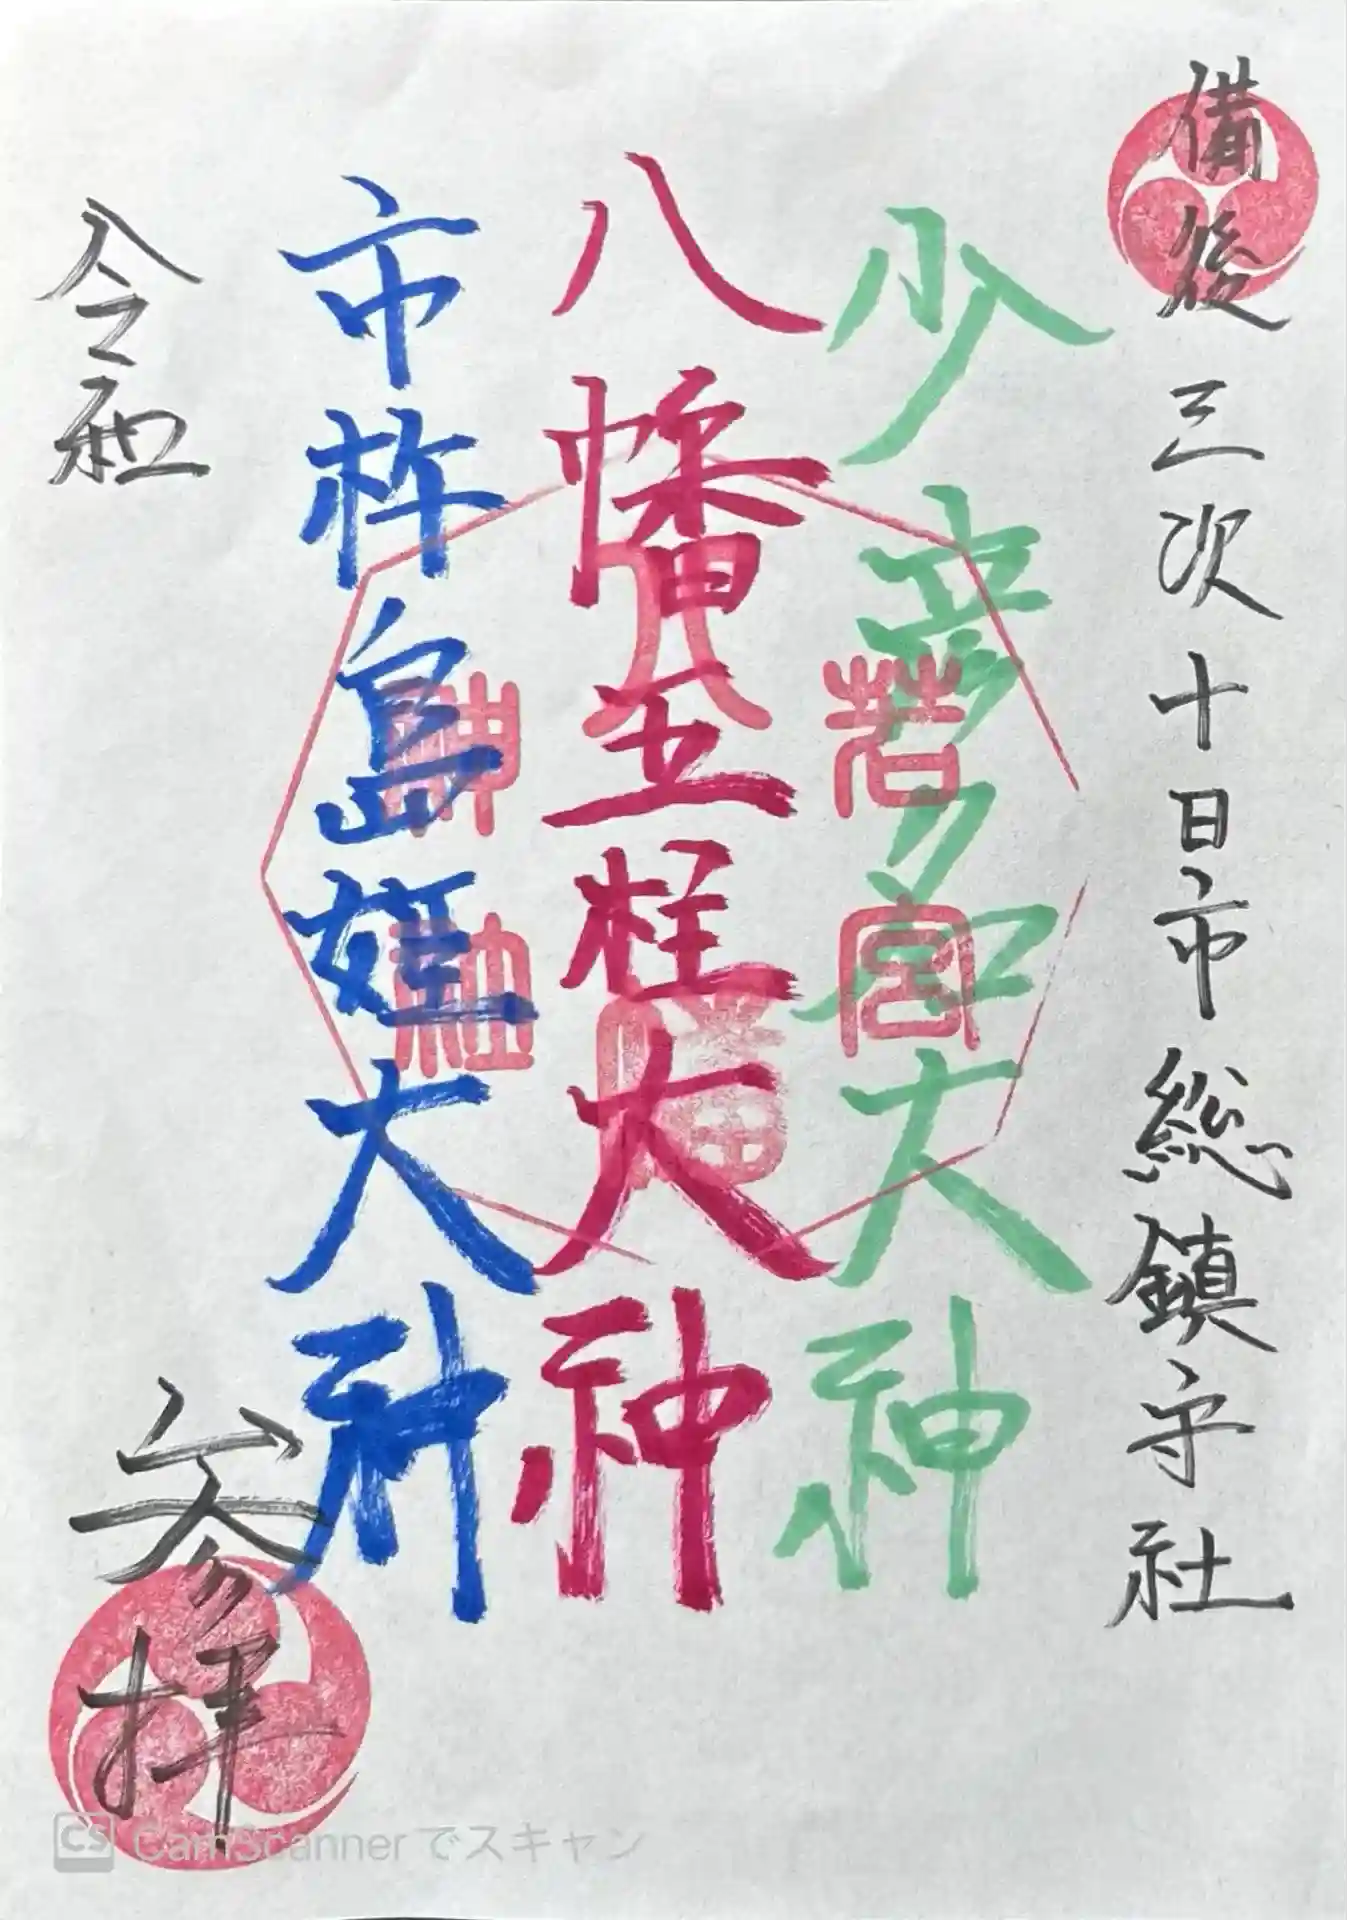 備後三次十日市総鎮守社
少彦名大神
八幡五柱大神
市杵島姫大神
若宮
八幡
神社
令和
参拝
CS CamScannerでスキャン